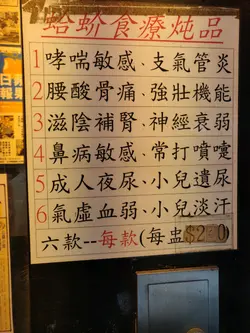 蛤蚧食療炖品
1 哮喘敏感、支氣管炎
2 腰酸骨痛、強壯機能
3 滋陰補腎、神經衰弱
4 鼻病敏感、常打噴嚏
5 成人夜尿、小兒遺尿
6 氣虛血弱、小兒淡汗
六款--每款(每盅